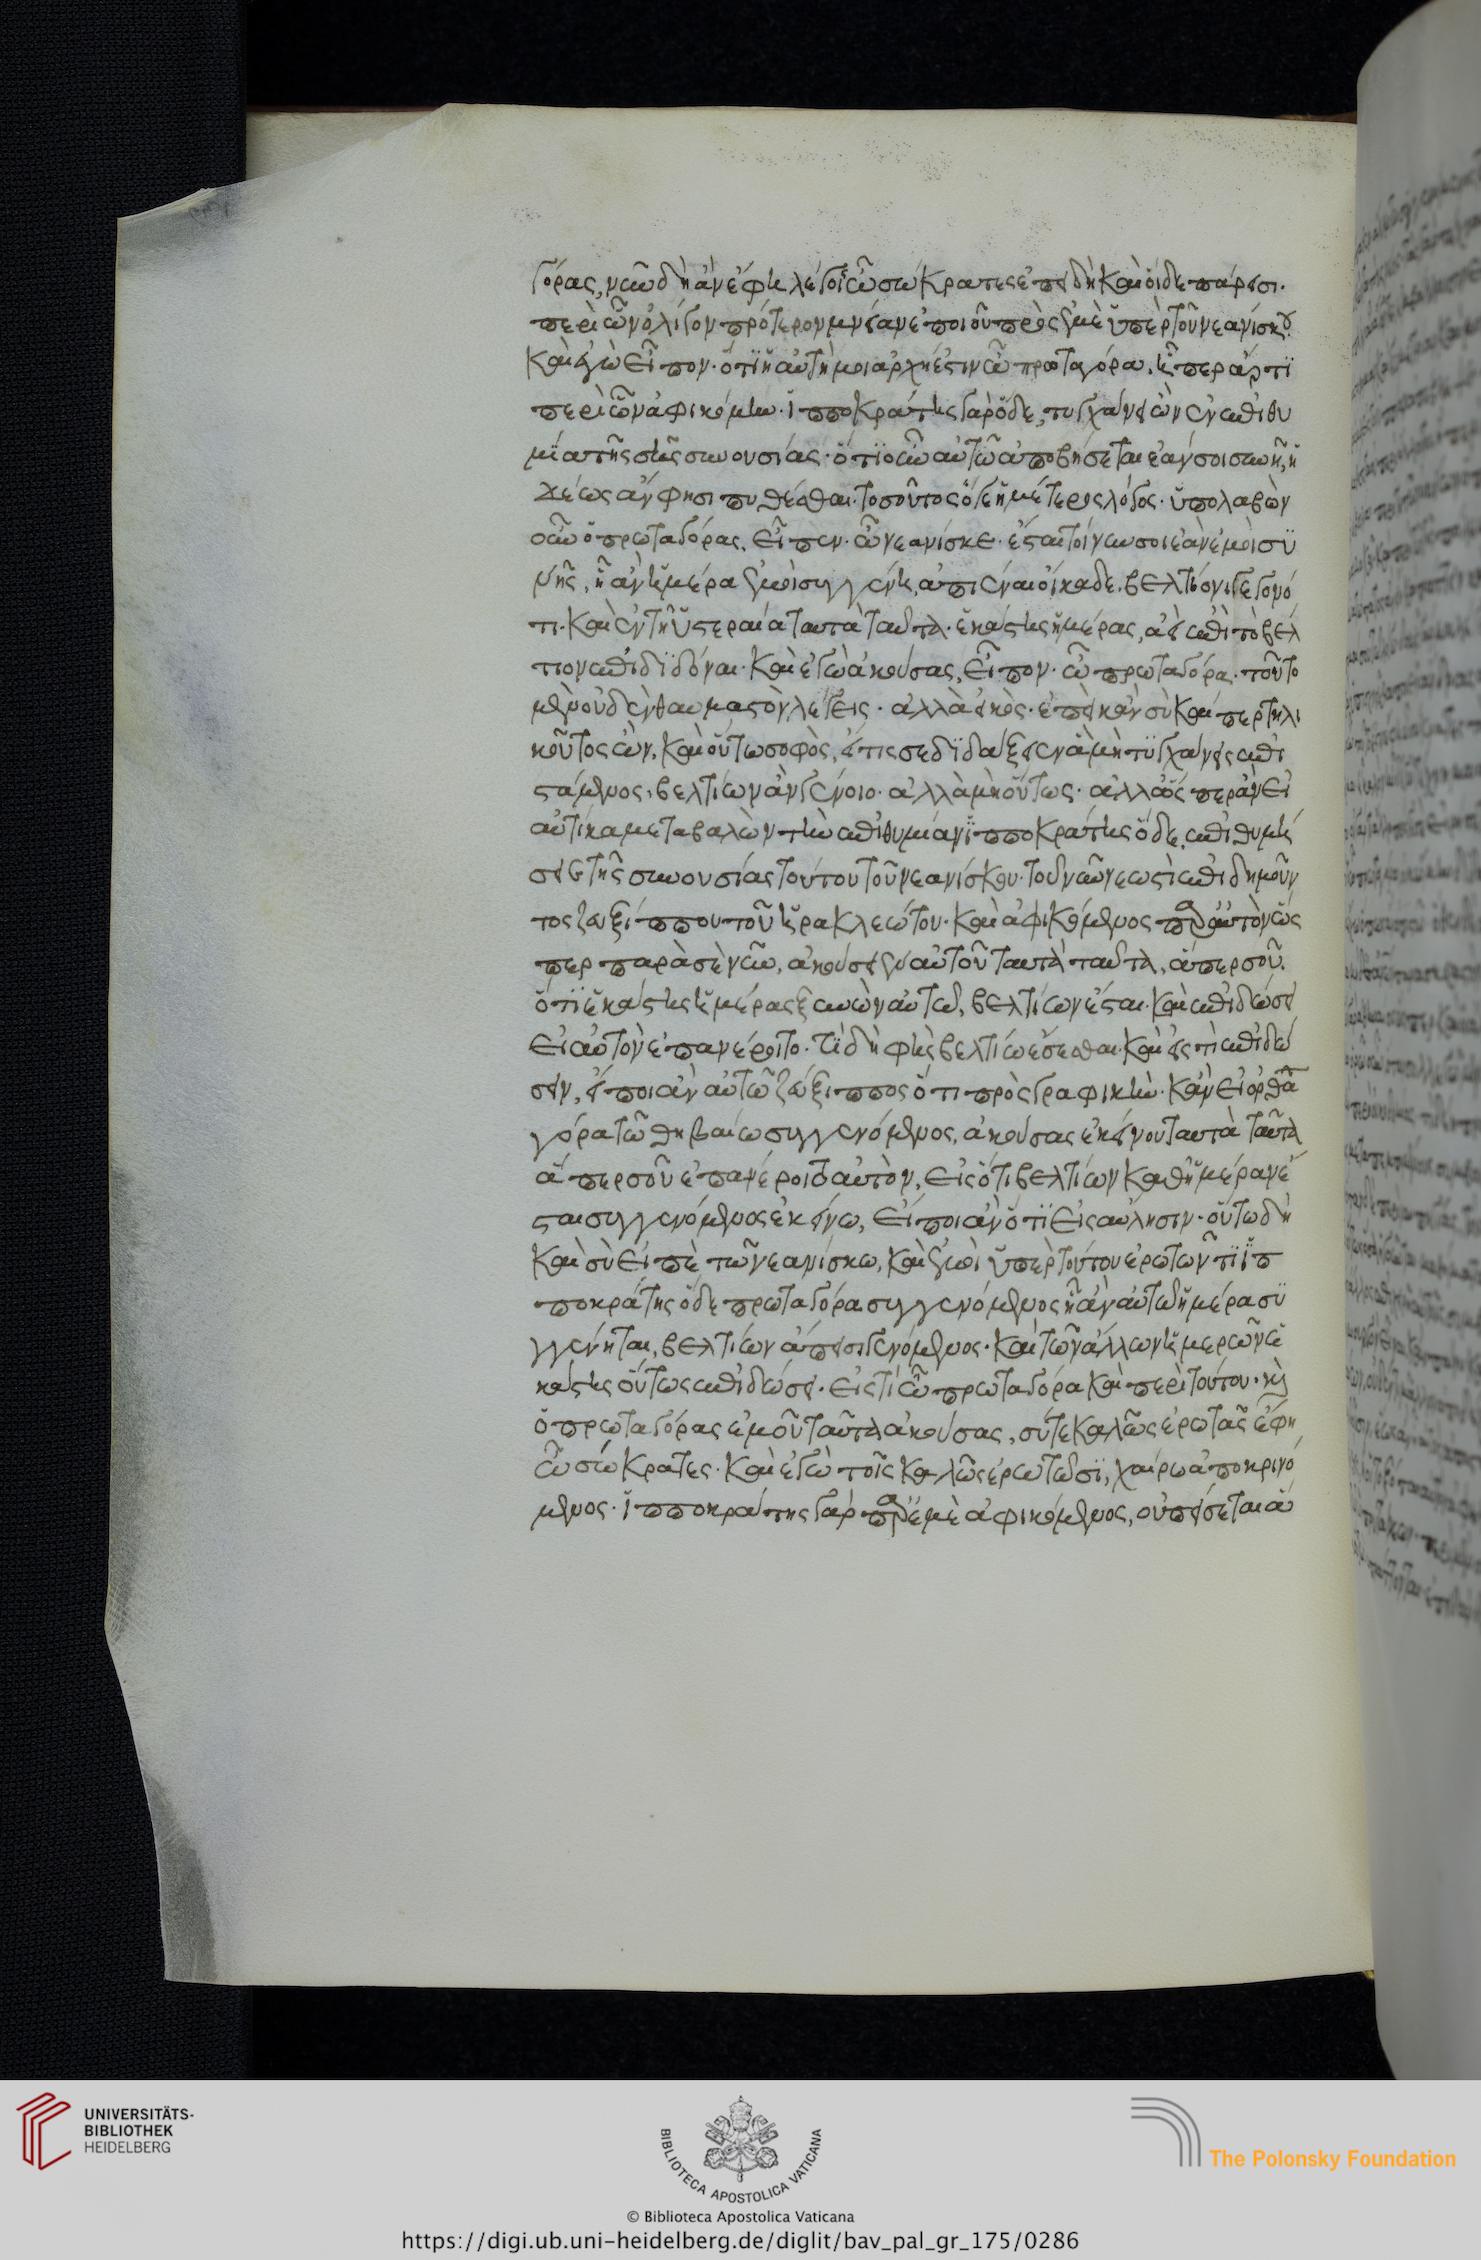 γόρας, νῦν δὴ ἂν ἔφη λέγοις ὦ σώκρατες ἐπειδὴ καὶ οἵδε πάρεισι·
περὶ ὧν ὀλίγον πρότερον μνείαν ἐποιοῦ πρὸς ἐμὲ ὑπὲρ τοῦ νεανίσκου·
καὶ ἐγὼ εἶπον· ὅτι ἡ αὐτή μοι ἀρχή ἐστιν ὦ πρωταγόρα, ἥπερ ἄρτι
περὶ ὧν ἀφικόμην· ἱπποκράτης γὰρ ὅδε, τυγχάνει ὢν ἐν ἐπιθυ
μίᾳ τῆς σῆς συνουσίας· ὅ τι οὖν αὐτῶ ἀποβήσεται ἐάν σοι συνῆ, ἡ
δέως ἄν φησι πυθέσθαι· τοσοῦτος ὅ γε ἡμέτερος λόγος· ὑπολαβὼν
οὖν ὁ πρωταγόρας, εἶπεν· ὦ νεανίσκε· ἔσται τοίνυν σοι ἐὰν ἐμοὶ συ
νῆς, ἧ ἂν ἡμέρα ἐμοὶ συγγένη, ἀπιέναι οἴκαδε βελτίονι γεγονό
τι· καὶ ἐν τῆ ὑστεραία ταυτὰ ταῦτα· ἑκάστης ἡμέρας, ἀεὶ ἐπὶ τὸ βέλ
τιον ἐπιδιδόναι· καὶ ἐγὼ ἀκούσας, εἶπον· ὦ πρωταγόρα· τοῦτο
μὲν οὐδὲν θαυμαστὸν λέγεις· ἀλλὰ εἰκὸς· ἐπεὶ κἂν σὺ καίπερ τηλι
κοῦτος ὢν, καὶ οὕτω σοφὸς, εἴ τις σε διδάξειεν ὃ μὴ τυγχάνεις ἐπι
στάμενος, βελτίων ἂν γένοιο· ἀλλὰ μὴ οὕτως· ἀλλ' ὥσπερ ἂν εἰ
αὐτίκα μεταβαλὼν τὴν ἐπιθυμίαν ἱπποκράτης ὅδε, ἐπιθυμή
σειε τῆς συνουσίας τούτου τοῦ νεανίσκου· τοῦ νῦν νεωστὶ ἐπιδημοῦν
τος ζευξίππου τοῦ ἡρακλεώτου· καὶ ἀφικόμενος παρ' αὐτὸν ὥς
περ παρὰ σὲ νῦν, ἀκούσειεν αὐτοῦ ταυτὰ ταῦτα, ἅπερ σοῦ·
ὅτι ἑκάστης ἡμέρας ξυνὼν αὐτῶ, βελτίων ἔσται· καὶ ἐπιδώσει
εἰ αὐτὸν ἐπανέροιτο· τί δὴ φὴς βελτίω ἔσεσθαι· καὶ εἰς τί ἐπιδώ
σειν, εἴποι ἂν αὐτῶ ζεύξιππος ὅτι πρὸς γραφικήν· κἂν εἰ ὀρθα
γόρα τῶ θηβαίω συγγενόμενος, ἀκούσας ἐκείνου ταυτὰ ταῦτα
ἅπερ σοῦ ἐπανέροιτο αὐτὸν, εἰς ὅτι βελτίων καθ' ἡμέραν ἔ
σται συγγενόμενος ἐκείνω, εἴποι ἂν ὅτι εἰς αὔλησιν· οὕτω δὴ
καὶ σὺ εἰπὲ τῶ νεανίσκω, καὶ ἐμοὶ ὑπὲρ τούτου ἐρωτῶντι ἱπ
ποκράτης ὅδε πρωταγόρα συγγενόμενος ἧ ἂν αὐτῶ ἡμέρα συ
γγένηται, βελτίων ἄπεισι γενόμενος· καὶ τῶν ἄλλων ἡμερῶν ἑ
κάστης οὕτως ἐπιδώσει· εἰς τί ὦ πρωταγόρα καὶ περὶ τούτου· καὶ
ὁ πρωταγόρας ἐμοῦ ταῦτα ἀκούσας, σύ τε καλῶς ἐρωτᾶς ἔφη
ὦ σώκρατες· καὶ ἐγὼ τοῖς καλῶς ἐρωτῶσι, χαίρω ἀποκρινό
μενος· ἱπποκράτης γὰρ παρ' ἐμὲ ἀφικόμενος, οὐ πείσεται ἃ
UNIVERSITÄTS-
BIBLIOTHEK
HEIDELBERG
BIBLIOTECA APOSTOLICA VATICANA
The Polonsky Foundation
© Biblioteca Apostolica Vaticana
https://digi.ub.uni-heidelberg.de/diglit/bav_pal_gr_175/0286